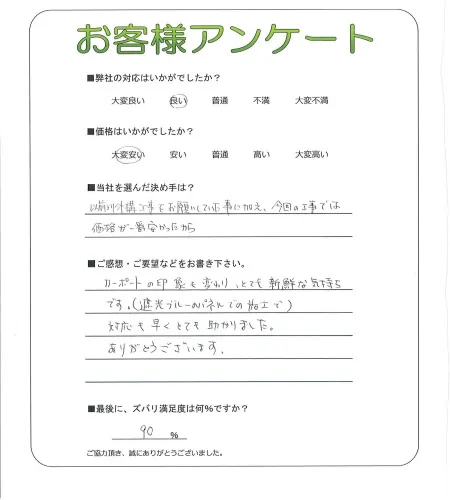 お客様アンケート
■弊社の対応はいかがでしたか？
大変良い 良い 普通 不満 大変不満
■価格はいかがでしたか？
大変安い 安い 普通 高い 大変高い
■当社を選んだ決め手は？
以前外構工事をお願いしている事に加え、今回の工事では
価格が一番安かったから
■ご感想・ご要望などをお書き下さい。
カーポートの印象も変わり、とても新鮮な気持ち
です。(遮光ブルーのパネルでの施工で)
対応も早くとても助かりました。
ありがとうございます。
■最後に、ズバリ満足度は何%ですか？
90 %
ご協力頂き、誠にありがとうございました。